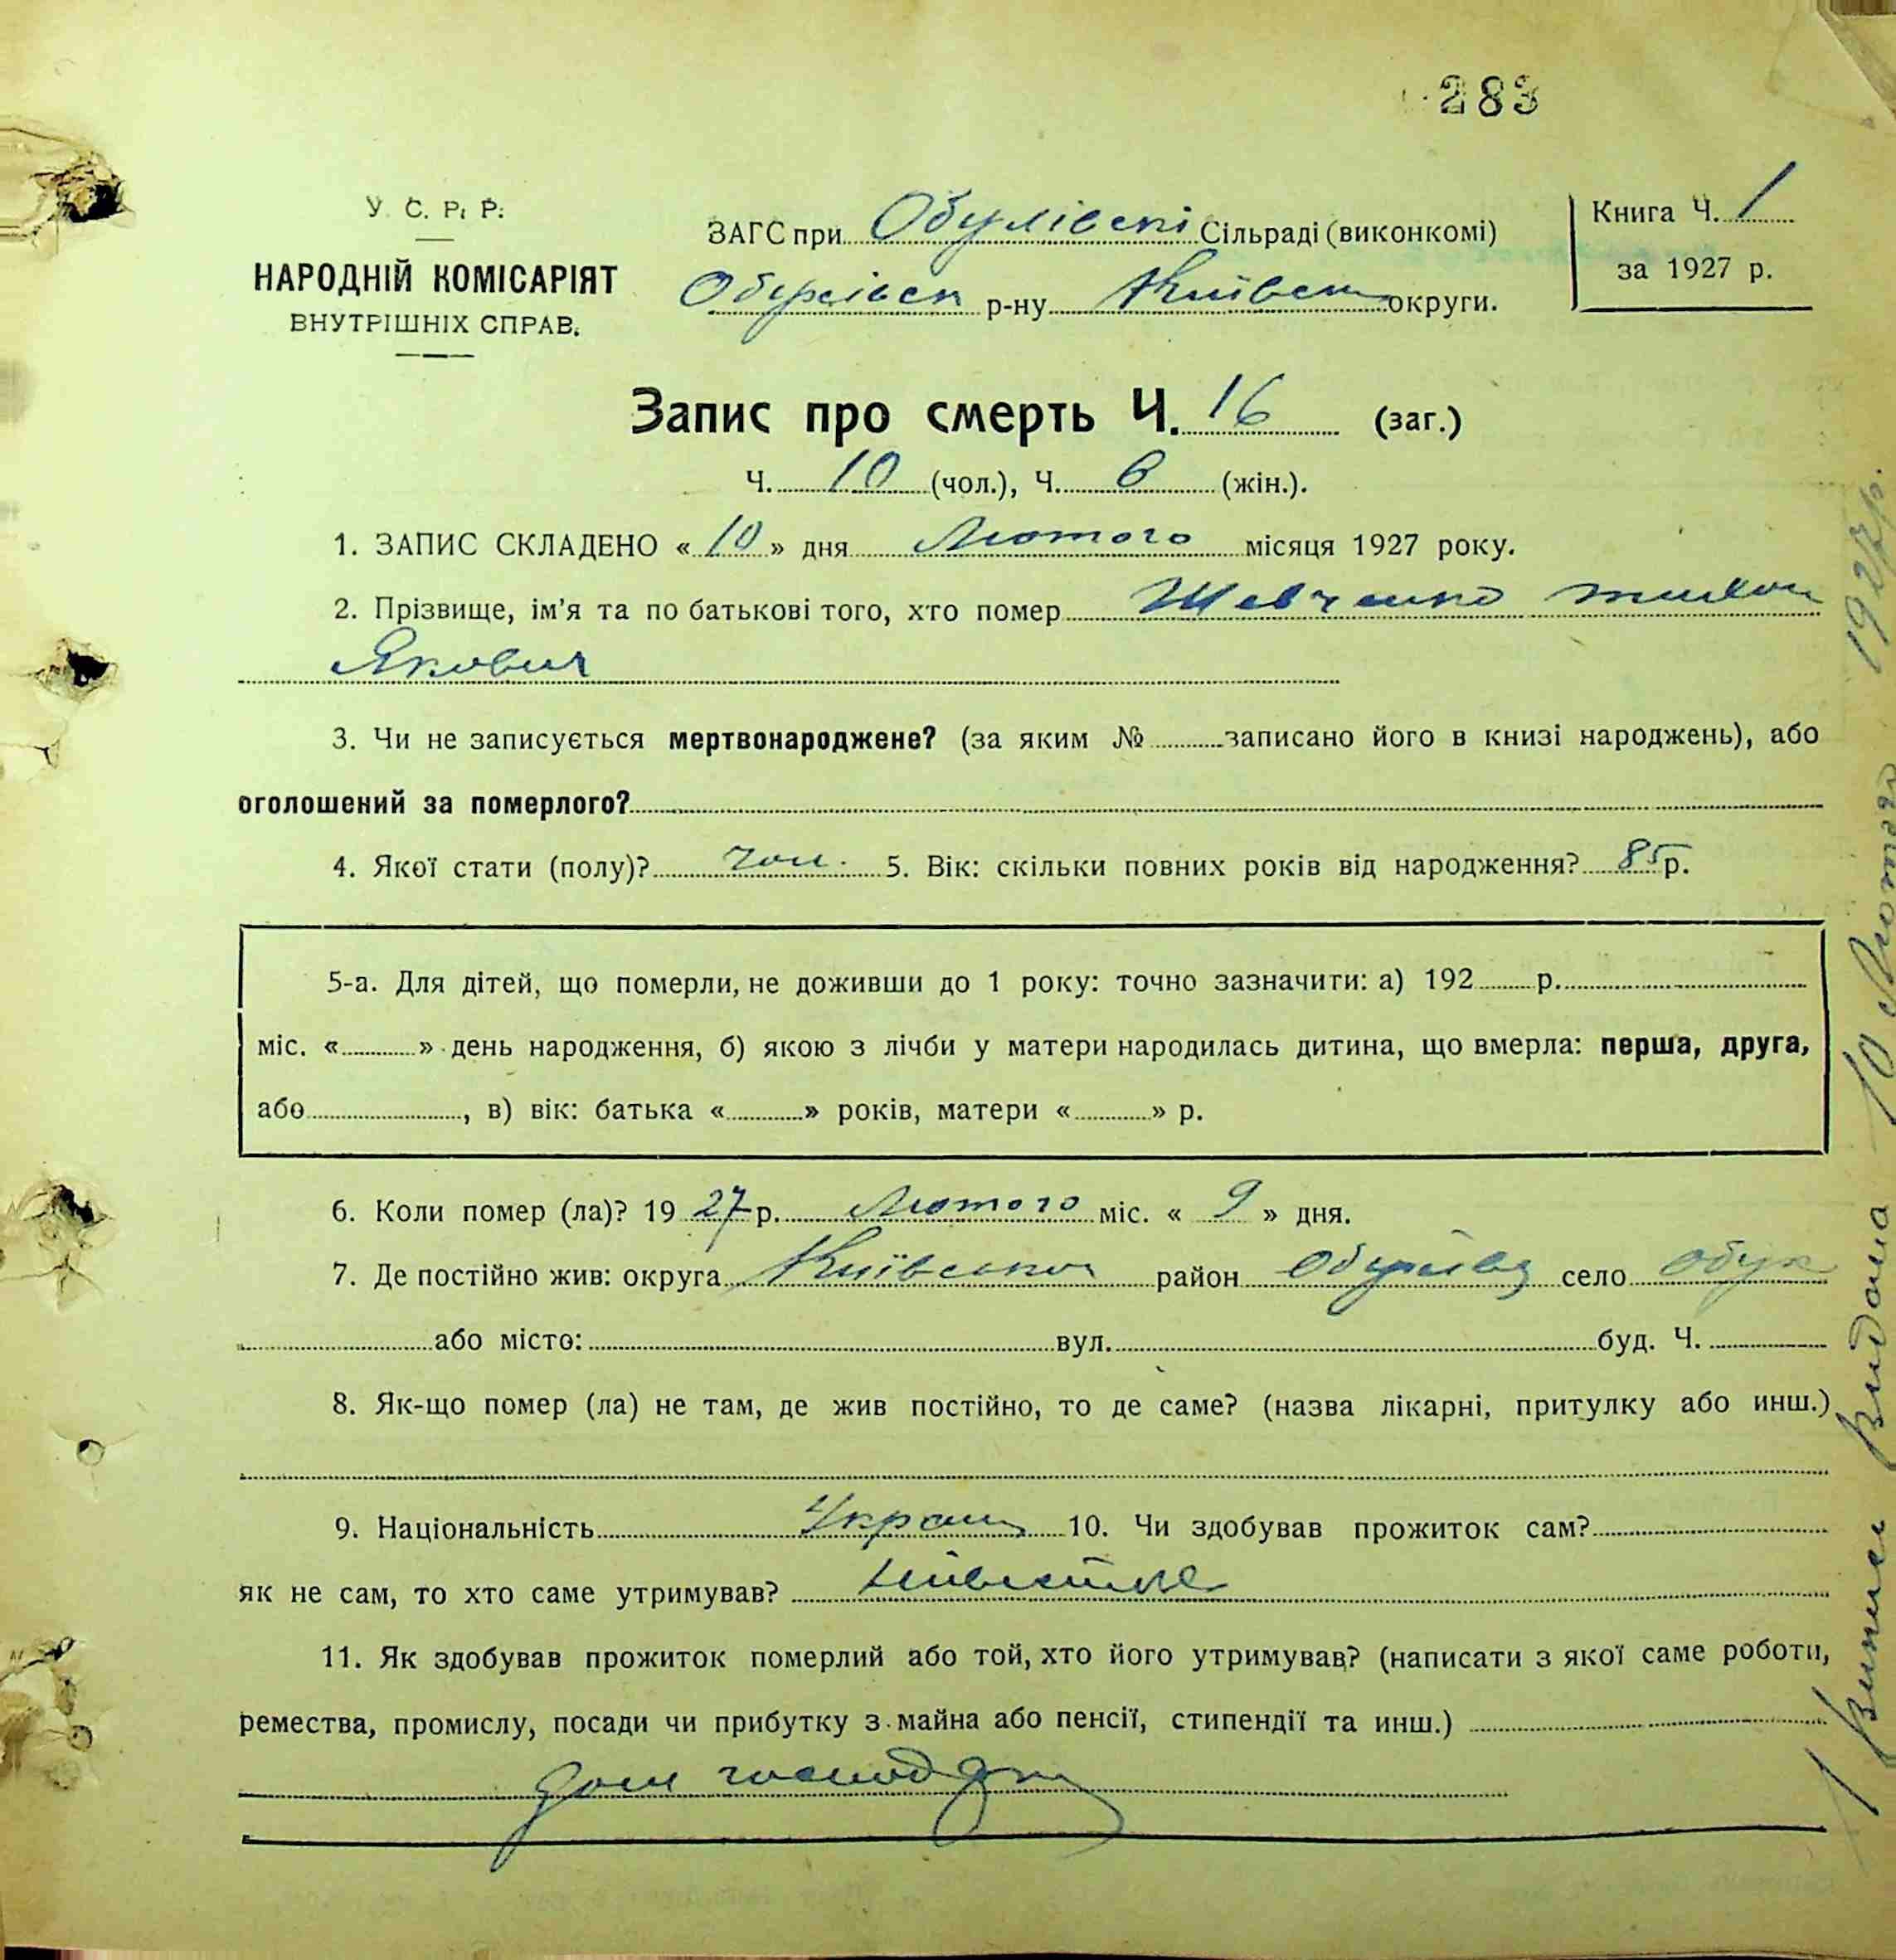 283
У. С. Р. Р.
НАРОДНІЙ КОМІСАРІЯТ
ВНУТРІШНІХ СПРАВ.
ЗАГС при Сільраді (виконкомі)
р-ну Київськ округи.
Книга Ч. 1
за 1927 р.
Запис про смерть Ч. 16 (заг.)
Ч. 10 (чол.), Ч. 6 (жін.).
1. ЗАПИС СКЛАДЕНО « 10 » дня Лютого місяця 1927 року.
2. Прізвище, ім'я та по батькові того, хто помер Шевченко
Якович
3. Чи не записується мертвонароджене? (за яким № записано його в книзі народжень), або
оголошений за померлого?
4. Якої стати (полу)? чол. 5. Вік: скільки повних років від народження? 85 р.
5-а. Для дітей, що померли, не доживши до 1 року: точно зазначити: а) 192 р.
міс. « » день народження, б) якою з лічби у матери народилась дитина, що вмерла: перша, друга,
або , в) вік: батька « » років, матери « » р.
6. Коли помер (ла)? 19 27 р. Лютого міс. « 9 » дня.
7. Де постійно жив: округа Київська район село Обух
або місто: вул. буд. Ч.
8. Як-що помер (ла) не там, де жив постійно, то де саме? (назва лікарні, притулку або инш.)
9. Національність 10. Чи здобував прожиток сам?
як не сам, то хто саме утримував?
11. Як здобував прожиток померлий або той, хто його утримував? (написати з якої саме роботи,
ремества, промислу, посади чи прибутку з майна або пенсії, стипендії та инш.)
Випис видана 10 Лютого 1927р.